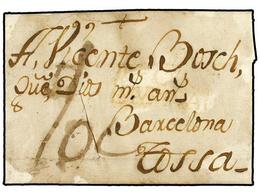 A, Vicente Bosch,
Que, Dios m.s an.s
8
Barcelona
Tossa